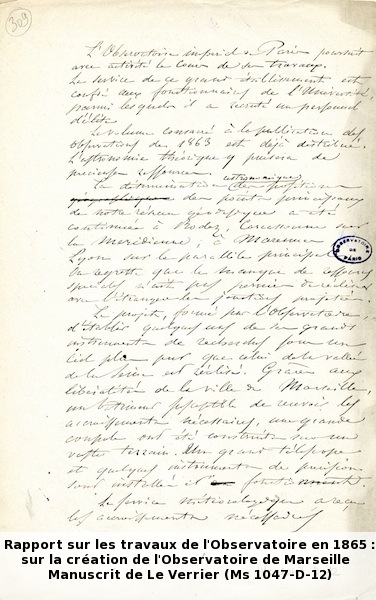 309
L'Observatoire impérial de Paris poursuit
avec activité le cours de ses travaux.
Le service de ce grand établissement est
confié aux fonctionnaires de l'Université,
parmi lesquels il a recruté un personnel
d'élite.
Le volume consacré à la publication des
observations de 1863 est déjà distribué.
L'astronomie théorique y puisera de
précieuses ressources.
astronomique
La détermination des positions
des points principaux
de notre réseau géodésique a été
continuée à Rodez, Carcassonne sur
la méridienne; à Marennes
Lyon sur le parallèle principal.
On regrette que le manque de
ait pas permis de
avec l'étranger les jonctions projetées.
Le projet, formé par l'Observatoire,
d'établir quelques uns de ses grands
instruments de recherches sous un
ciel plus pur que celui de la vallée
de la Seine est réalisé. Grâce aux
libéralités de la ville de Marseille,
un bâtiment susceptible de recevoir les
accroissements nécessaires, une grande
coupole ont été construits sur un
vaste terrain. Un grand télescope
et quelques instruments de précision
sont installés et fonctionnent.
Le service météorologique a reçu
les accroissements nécessaires
OBSERVATOIRE
DE
PARIS
Rapport sur les travaux de l'Observatoire en 1865 :
sur la création de l'Observatoire de Marseille
Manuscrit de Le Verrier (Ms 1047-D-12)